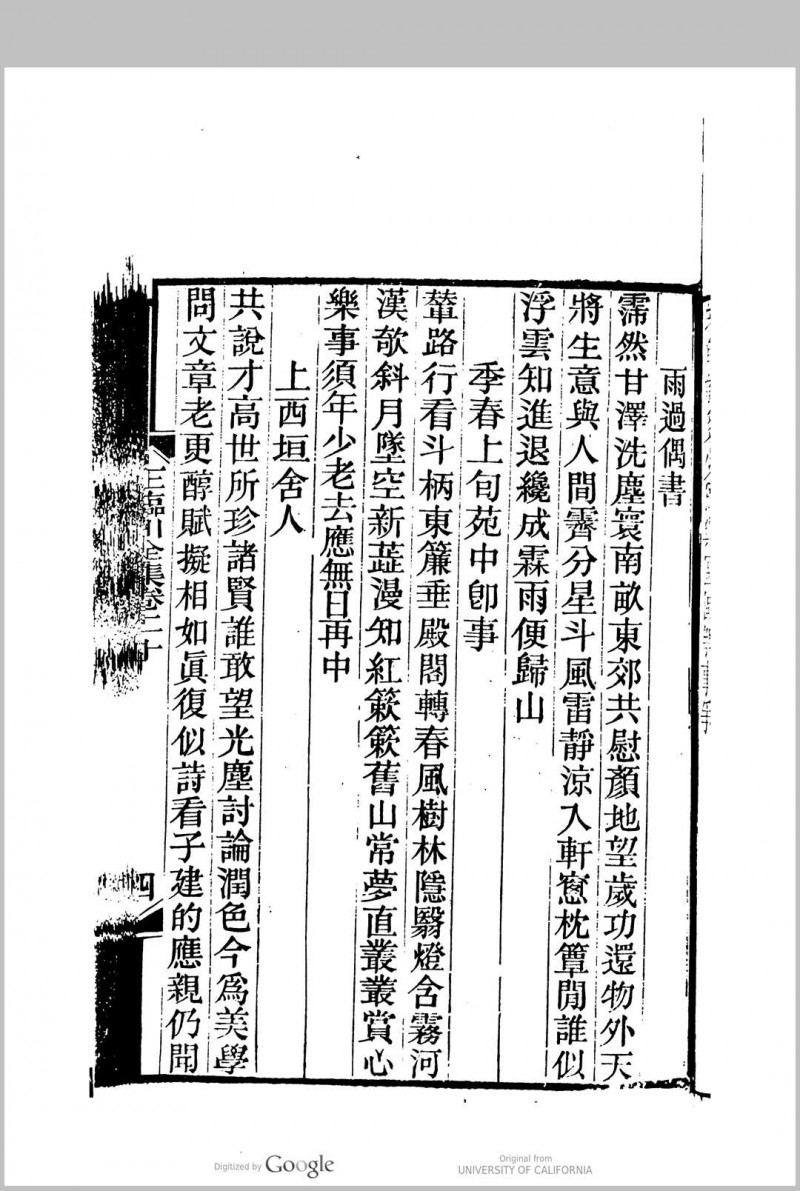 雨過偶書
霈然甘澤洗塵寰南畝東郊共慰顏地望歲功還物外天
將生意與人間霽分星斗風雷靜涼入軒窻枕簟閒誰似
浮雲知進退纔成霖雨便歸山
季春上旬苑中卽事
輦路行看斗柄東簾垂殿閣轉春風樹林隱翳燈含霧河
漢欹斜月墜空新蕋漫知紅簌簌舊山常夢直叢叢賞心
樂事須年少老去應無日再中
上西垣舍人
共說才高世所珍諸賢誰敢望光塵討論潤色今爲美學
問文章老更醇賦擬相如眞復似詩看子建的應親仍聞
王臨川全集卷二十
四
Digitized by Google
Original from
UNIVERSITY OF CALIFORNIA